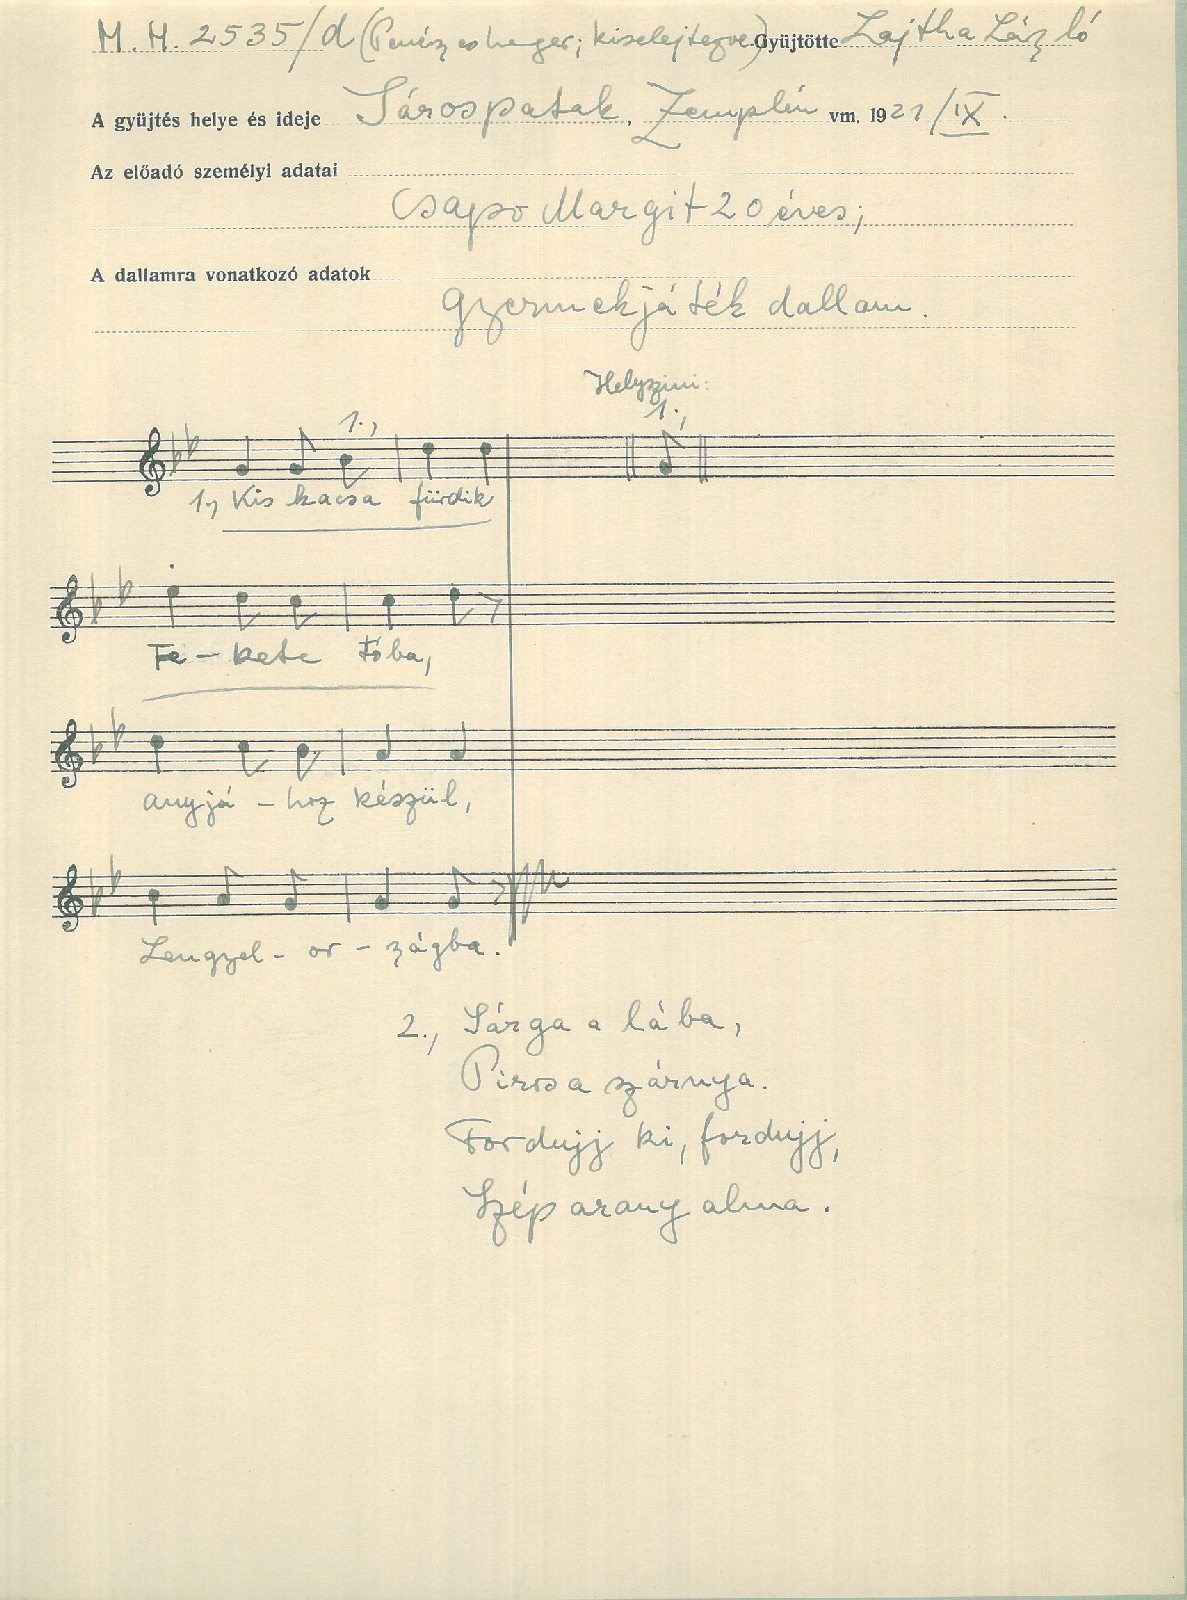 M. H. 2535/d (Penész es henger; kiselejtezve) Gyüjtötte Lajtha László
A gyüjtés helye és ideje Sárospatak, Zemplén vm. 1921/IX.
Az előadó személyi adatai
Csapo Margit 20 éves;
A dallamra vonatkozó adatok
gyermekjáték dallam.
Helyszini:
1., 1.,
1., Kis kacsa fürdik
Fe - kete tóba,
anyjá - hoz készül,
Lengyel - or - zágba.
2., Sárga a lába,
Piros a szárnya.
Fordujj ki, fordujj,
Szép arany alma.